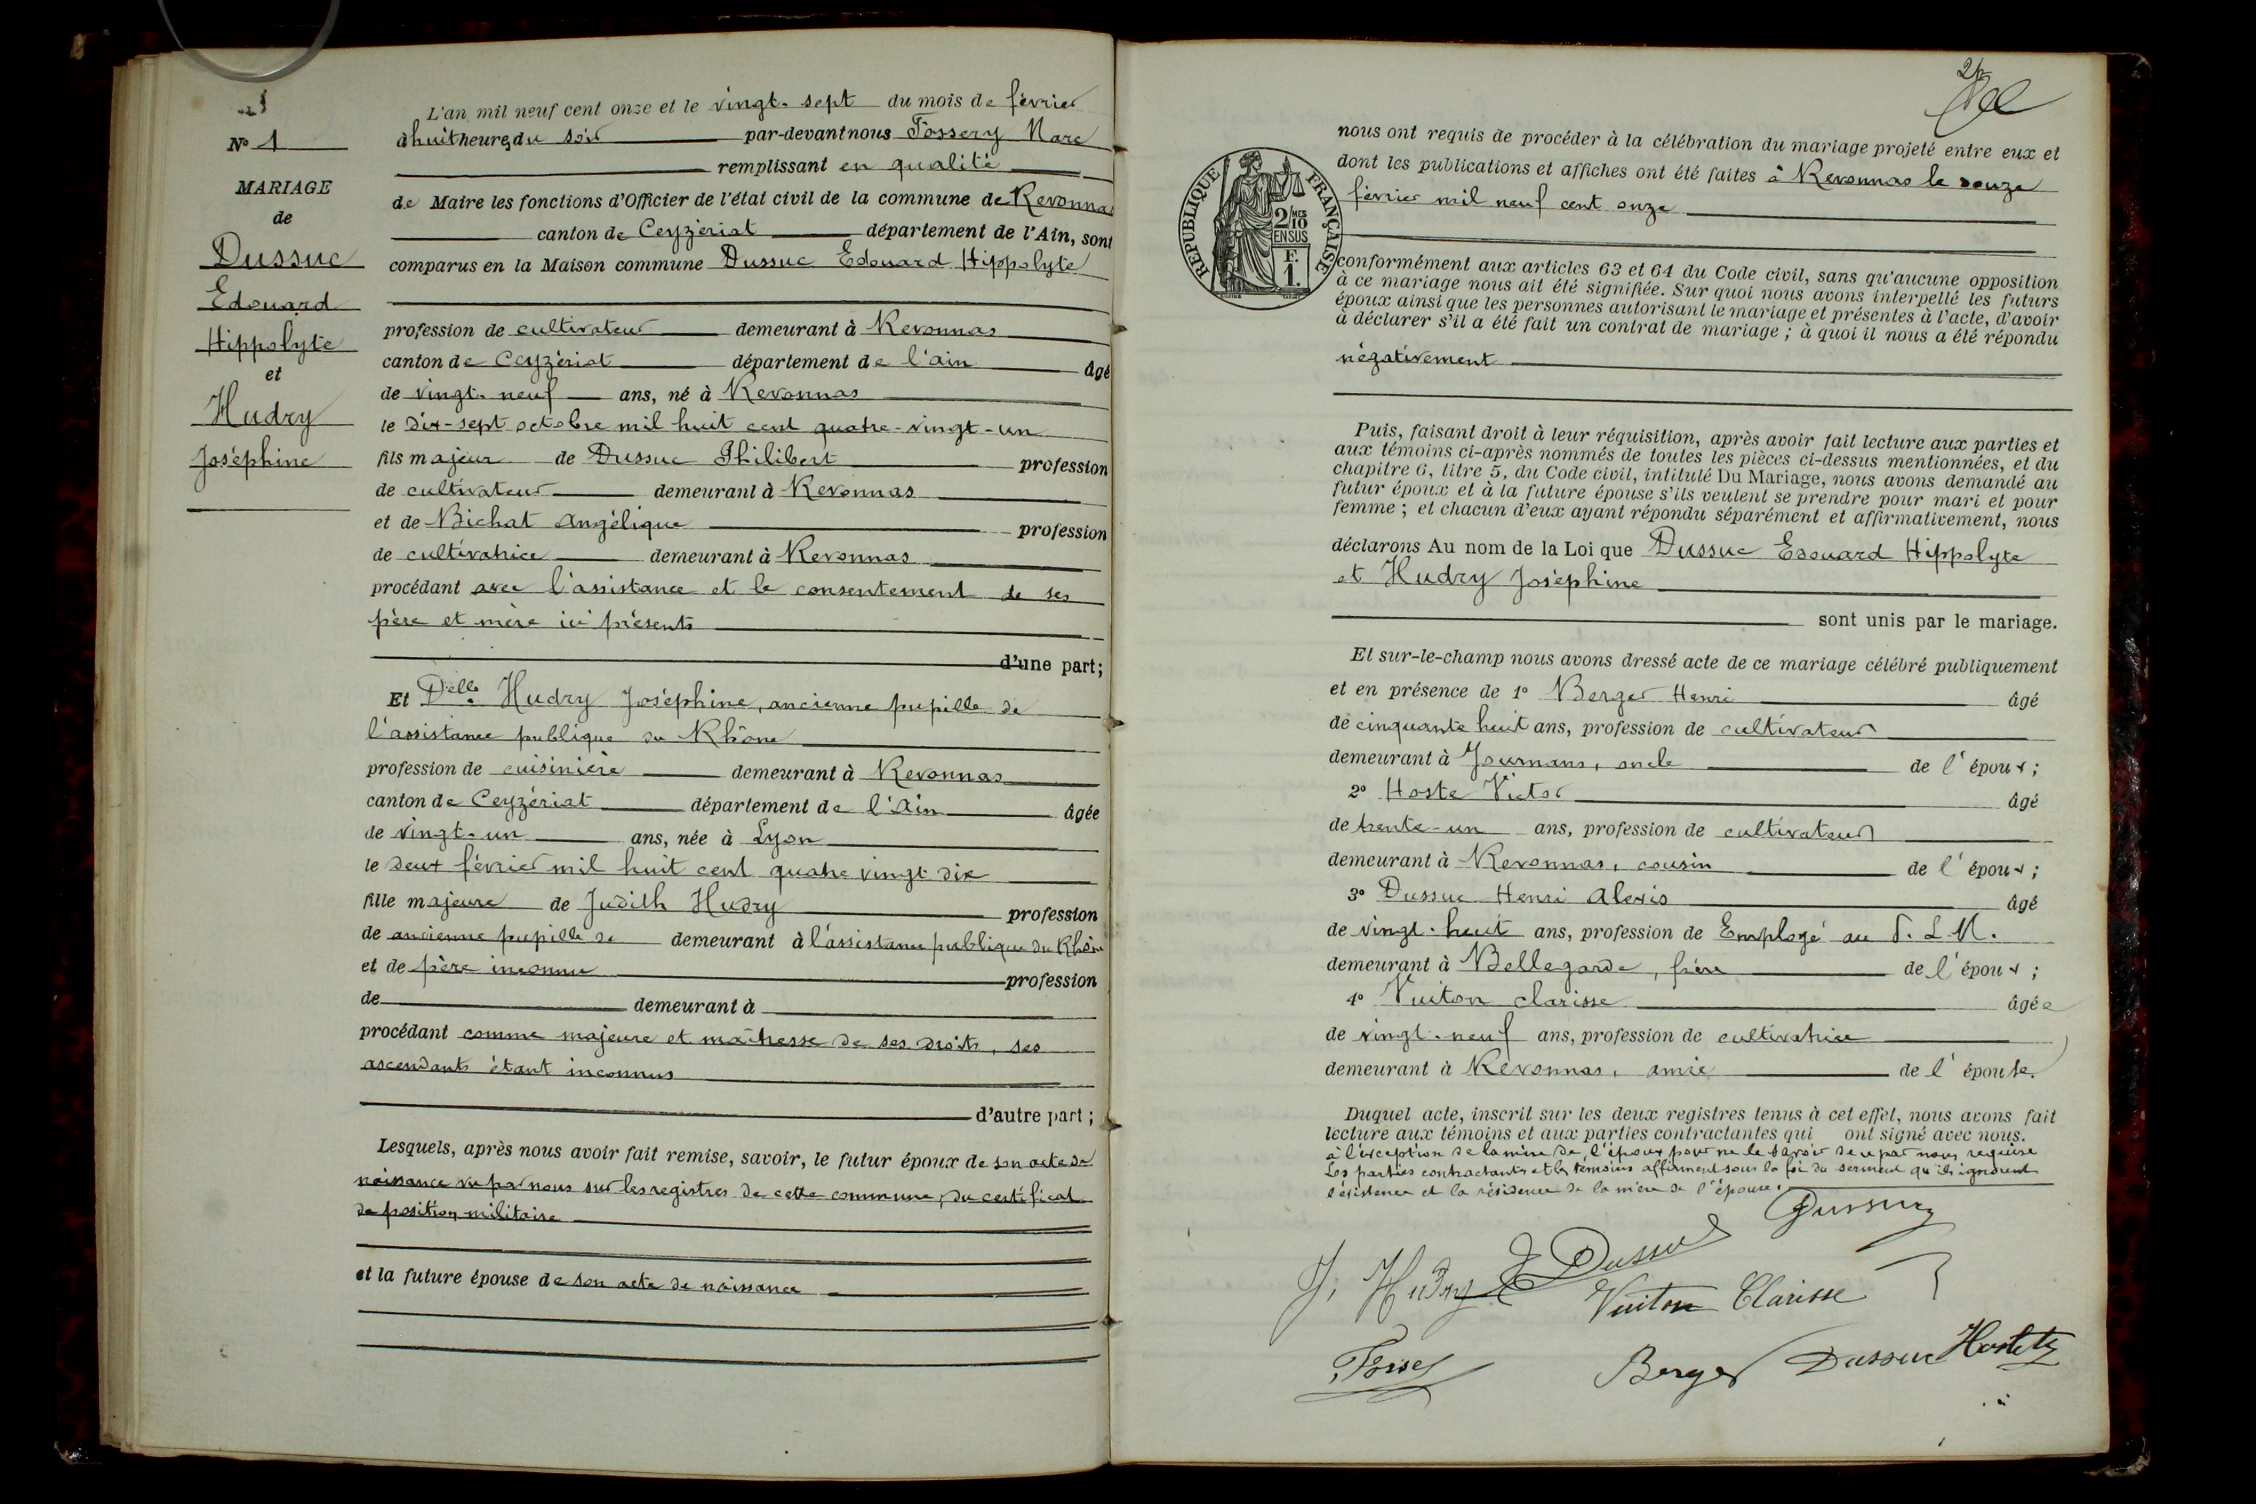 N° 1
MARIAGE
de
Dussuc
Edouard
Hippolyte
et
Hudry
Joséphine
L'an mil neuf cent onze et le vingt-sept du mois de février
à huit heures du soir par-devant nous Fossery Marc
remplissant en qualité
de Maire les fonctions d'Officier de l'état civil de la commune de Revonnas
canton de Ceyzériat département de l'Ain, sont
comparus en la Maison commune Dussuc Edouard Hippolyte
profession de cultivateur demeurant à Revonnas
canton de Ceyzériat département de l'ain âgé
de vingt-neuf ans, né à Revonnas
le dix-sept octobre mil huit cent quatre-vingt-un
fils majeur de Dussuc Philibert profession
de cultivateur demeurant à Revonnas
et de Bichat Angélique profession
de cultivatrice demeurant à Revonnas
procédant avec l'assistance et le consentement de ses
père et mère ici présents
d'une part;
Et Delle Hudry Joséphine, ancienne pupille de
l'assistance publique du Rhône
profession de cuisinière demeurant à Revonnas
canton de Ceyzériat département de l'Ain âgée
de vingt-un ans, née à Lyon
le deux février mil huit cent quatre vingt dix
fille majeure de Judith Hudry profession
de ancienne pupille de demeurant à l'assistance publique du Rhône
et de père inconnu profession
de demeurant à
procédant comme majeure et maîtresse de ses droits, ses
ascendants étant inconnus
d'autre part;
Lesquels, après nous avoir fait remise, savoir, le futur époux de son acte de
naissance vu par nous sur les registres de cette commune, du certificat
de position militaire
et la future épouse de son acte de naissance
RÉPUBLIQUE FRANÇAISE
2/10 MES
EN SUS
F.
1.
nous ont requis de procéder à la célébration du mariage projeté entre eux et
dont les publications et affiches ont été faites à Revonnas le douze
février mil neuf cent onze
conformément aux articles 63 et 64 du Code civil, sans qu'aucune opposition
à ce mariage nous ait été signifiée. Sur quoi nous avons interpellé les futurs
époux ainsi que les personnes autorisant le mariage et présentes à l'acte, d'avoir
à déclarer s'il a été fait un contrat de mariage; à quoi il nous a été répondu
négativement
Puis, faisant droit à leur réquisition, après avoir fait lecture aux parties et
aux témoins ci-après nommés de toutes les pièces ci-dessus mentionnées, et du
chapitre 6, titre 5, du Code civil, intitulé Du Mariage, nous avons demandé au
futur époux et à la future épouse s'ils veulent se prendre pour mari et pour
femme; et chacun d'eux ayant répondu séparément et affirmativement, nous
déclarons Au nom de la Loi que Dussuc Edouard Hippolyte
et Hudry Joséphine
sont unis par le mariage.
Et sur-le-champ nous avons dressé acte de ce mariage célébré publiquement
et en présence de 1° Berger Henri âgé
de cinquante huit ans, profession de cultivateur
demeurant à Journans, oncle de l'époux;
2° Hoste Victor âgé
de trente-un ans, profession de cultivateur
demeurant à Revonnas, cousin de l'époux;
3° Dussuc Henri Alexis âgé
de vingt-huit ans, profession de Employé au P. L. M.
demeurant à Bellegarde, frère de l'époux;
4° Vuiton Clarisse âgée
de vingt-neuf ans, profession de cultivatrice
demeurant à Revonnas, amie de l'épouse.
Duquel acte, inscrit sur les deux registres tenus à cet effet, nous avons fait
lecture aux témoins et aux parties contractantes qui ont signé avec nous.
à l'exception de la mère de l'époux pour ne le savoir de ce par nous requise
Les parties contractantes et les témoins affirment sous la foi du serment qu'ils ignorent
l'existence et la résidence de la mère de l'épouse.
Dussuc
J. Hudry E Dussuc
Vuiton Clarisse
Berger Dussuc